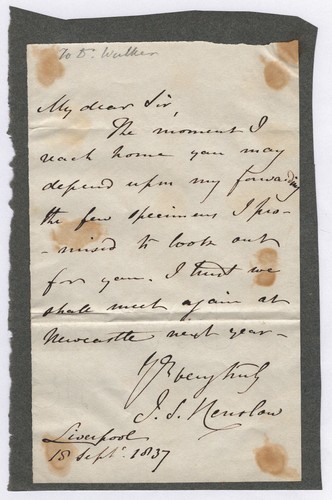 To Dr. Walker
My dear Sir,
The moment I
reach home you may
depend upon my forwarding
the few specimens I pro-
-mised to look out
for you. I trust we
shall meet again at
Newcastle next year -
Yrs very truly
J. S. Henslow
Liverpool
15 Septr. 1837